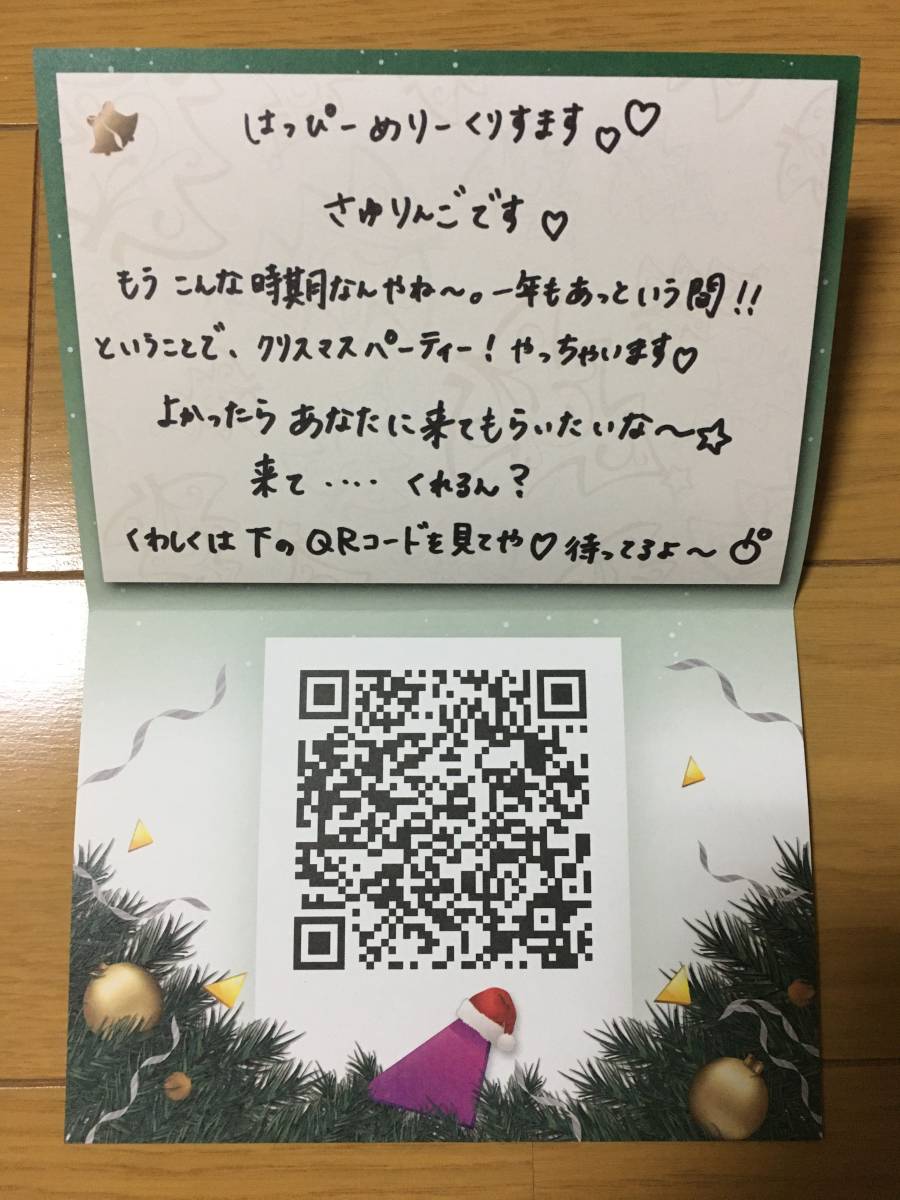 はっぴーめりーくりすます♡♡
さゆりんごです♡
もうこんな時期なんやね〜。一年もあっという間!!
ということで、クリスマスパーティー！やっちゃいます♡
よかったらあなたに来てもらいたいな〜☆
来て‥‥くれるん？
くわしくは下のQRコードを見てや♡待ってるよ〜